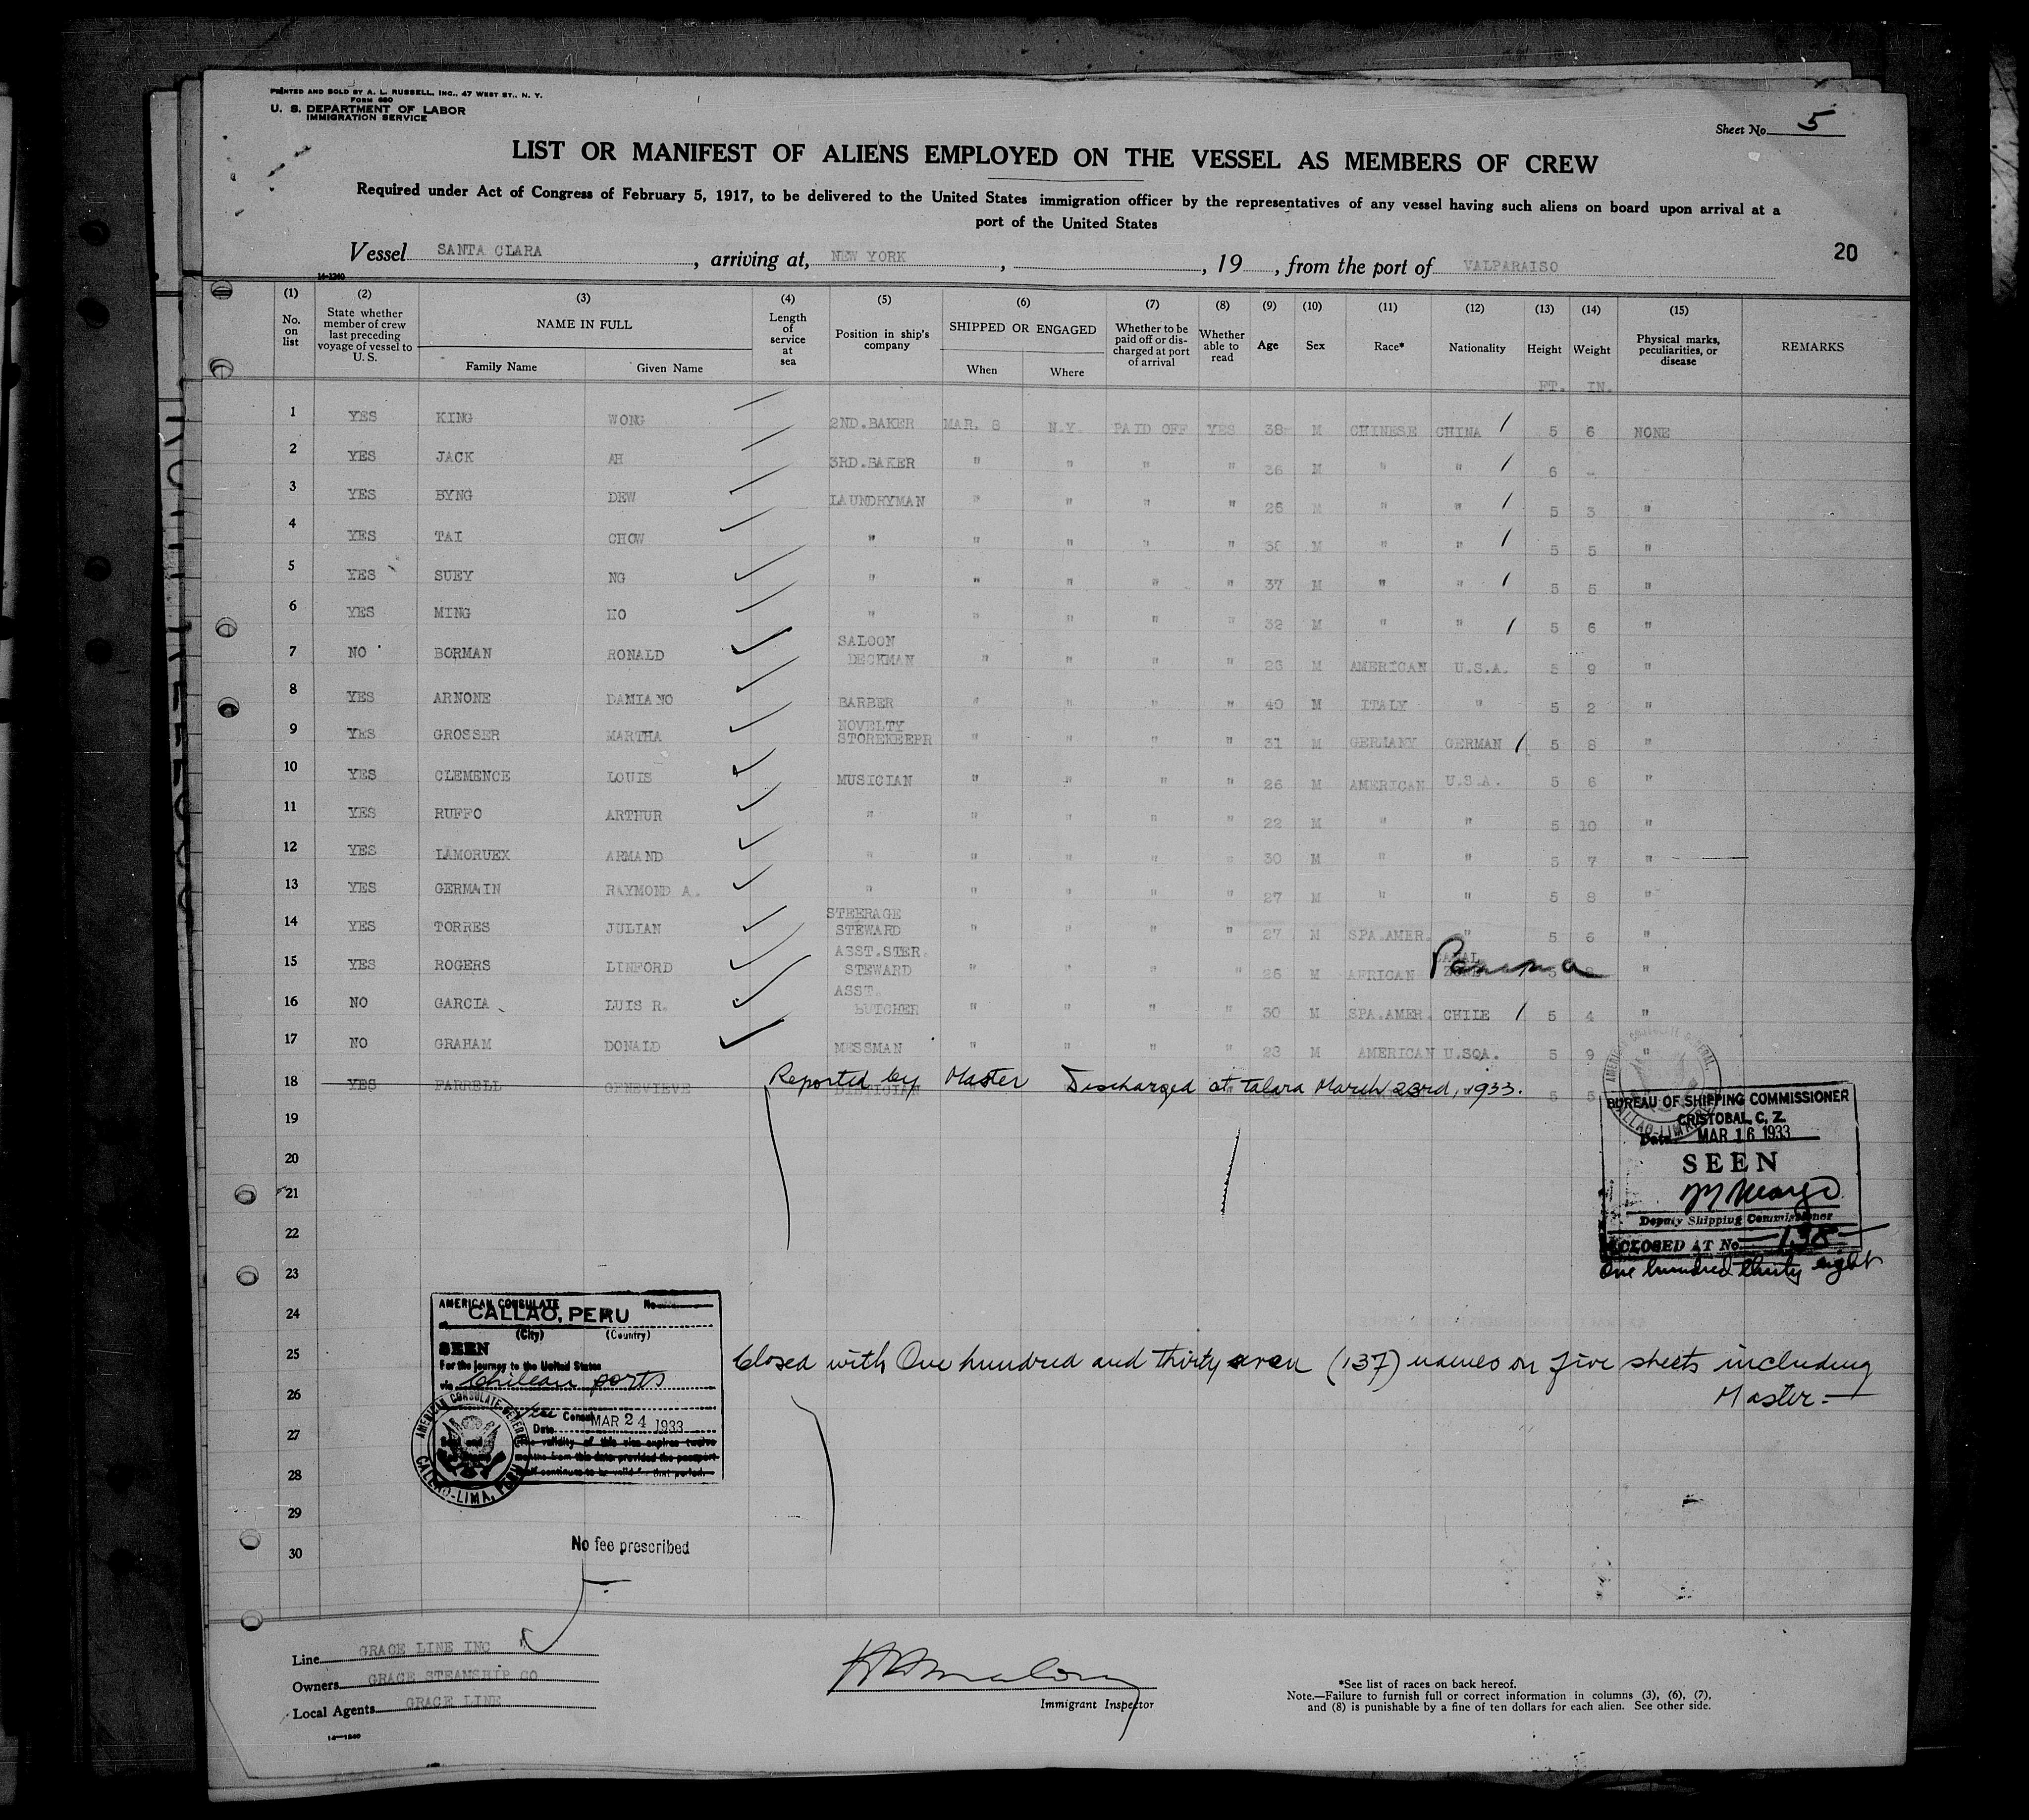 PRINTED AND SOLD BY A. L. RUSSELL, INC., 47 WEST ST., N. Y.
FORM 680
U. S. DEPARTMENT OF LABOR
IMMIGRATION SERVICE
Sheet No. 5
LIST OR MANIFEST OF ALIENS EMPLOYED ON THE VESSEL AS MEMBERS OF CREW
Required under Act of Congress of February 5, 1917, to be delivered to the United States immigration officer by the representatives of any vessel having such aliens on board upon arrival at a
port of the United States
20
Vessel SANTA CLARA, arriving at, NEW YORK, , 19 , from the port of VALPARAISO
14-1240
(1) No. on list
(2) State whether member of crew last preceding voyage of vessel to U. S.
(3) NAME IN FULL Family Name Given Name
(4) Length of service at sea
(5) Position in ship's company
(6) SHIPPED OR ENGAGED When Where
(7) Whether to be paid off or discharged at port of arrival
(8) Whether able to read
(9) Age
(10) Sex
(11) Race*
(12) Nationality
(13) Height
(14) Weight
(15) Physical marks, peculiarities, or disease
REMARKS
FT. IN.
1 YES KING WONG 2ND.BAKER MAR. 8 N.Y. PAID OFF YES 38 M CHINESE CHINA 5 6 NONE
2 YES JACK AH 3RD.BAKER " " " " 36 M " " 6
3 YES BYNG DEW LAUNDRYMAN " " " " 26 M " " 5 3 "
4 YES TAI CHOW " " " " " 38 M " " 5 5 "
5 YES SUEY NG " " " " " 37 M " " 5 5 "
6 YES MING HO " " " " " 32 M " " 5 6 "
7 NO BORMAN RONALD SALOON DECKMAN " " " " 23 M AMERICAN U.S.A. 5 9 "
8 YES ARNONE DAMIANO BARBER " " " " 40 M ITALY " 5 2 "
9 YES GROSSER MARTHA NOVELTY STOREKEEPR " " " " 31 M GERMANY GERMAN 5 8 "
10 YES CLEMENCE LOUIS MUSICIAN " " " " 26 M AMERICAN U.S.A. 5 6 "
11 YES RUFFO ARTHUR " " " " " 22 M " " 5 10 "
12 YES LAMORUEX ARMAND " " " " " 30 M " " 5 7 "
13 YES GERMAIN RAYMOND A. " " " " " 27 M " " 5 8 "
14 YES TORRES JULIAN STEERAGE STEWARD " " " " 27 M SPA.AMER. " 5 6 "
15 YES ROGERS LINFORD ASST.STER. STEWARD " " " " 26 M AFRICAN CANAL ZONE Panama 5 "
16 NO GARCIA LUIS R. ASST. BUTCHER " " " " 30 M SPA.AMER. CHILE 5 4 "
17 NO GRAHAM DONALD MESSMAN " " " " 23 M AMERICAN U.SQA. 5 9 "
18 YES FARRELL GENEVIEVE 5 5
Reported by Master Discharged at Talara March 23rd, 1933.
19
20
21
22
23
24
25
26
27
28
29
30
AMERICAN CONSULATE GENERAL
CALLAO-LIMA
BUREAU OF SHIPPING COMMISSIONER
CRISTOBAL, C. Z.
Date MAR 16 1933
SEEN
Deputy Shipping Commissioner
CLOSED AT No. 138
One hundred thirty eight
AMERICAN CONSULATE No.
CALLAO, PERU
(City) (Country)
SEEN
For the journey to the United States
via Chilean ports
Vice Consul
Date MAR 24 1933
The validity of this visa expires twelve
months from this date provided the passport
itself continues to be valid for that period.
AMERICAN CONSULATE-GENERAL
CALLAO-LIMA, PERU
Closed with One hundred and thirty seven (137) names on five sheets including
Master.
No fee prescribed
Line GRACE LINE INC
Owners GRACE STEAMSHIP CO
Local Agents GRACE LINE
14-1240
Immigrant Inspector
*See list of races on back hereof.
Note.—Failure to furnish full or correct information in columns (3), (6), (7),
and (8) is punishable by a fine of ten dollars for each alien. See other side.